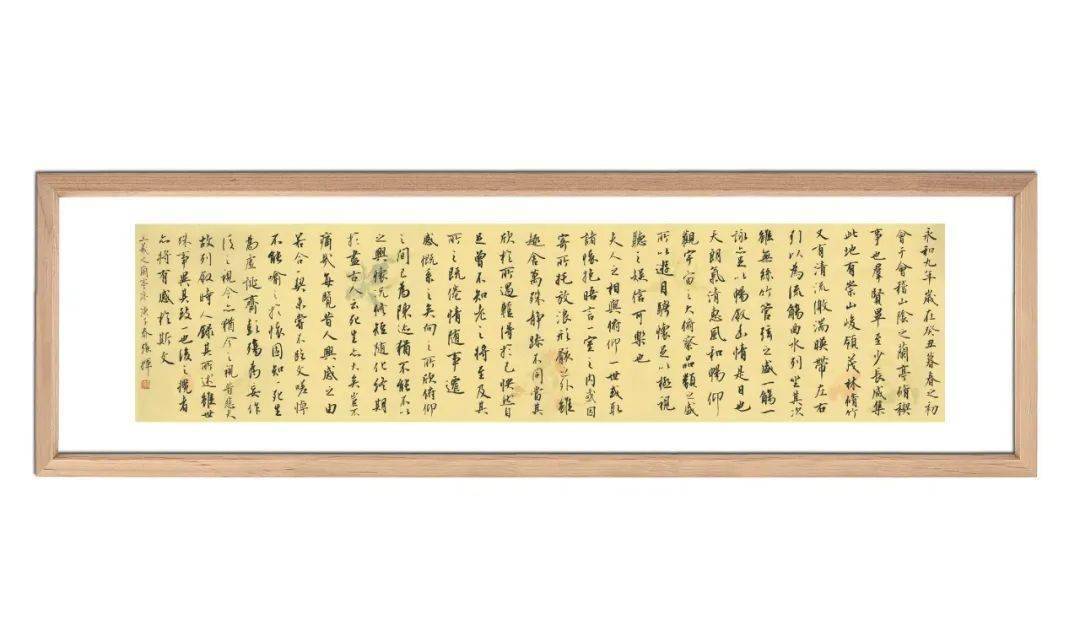 永和九年歲在癸丑暮春之初
會于會稽山陰之蘭亭脩稧
事也羣賢畢至少長咸集
此地有崇山峻領茂林脩竹
又有清流激湍暎帶左右
引以為流觴曲水列坐其次
雖無絲竹管弦之盛一觴一
詠亦足以暢叙幽情是日也
天朗氣清惠風和暢仰
觀宇宙之大俯察品類之盛
所以遊目騁懷足以極視
聽之娛信可樂也
夫人之相與俯仰一世或取
諸懷抱晤言一室之內或因
寄所托放浪形骸之外雖
趣舍萬殊靜躁不同當其
欣於所遇蹔得於己快然自
足曾不知老之將至及其
所之既倦情隨事遷
感慨係之矣向之所欣俯仰
之間已為陳迹猶不能不以
之興懷況脩短隨化終期
於盡古人云死生亦大矣豈不
痛哉每覽昔人興感之由
若合一契未嘗不臨文嗟悼
不能喻之於懷固知一死生
為虛誕齊彭殤為妄作
後之視今亦猶今之視昔悲夫
故列叙時人錄其所述雖世
殊事異其致一也後之攬者
亦將有感於斯文
王羲之蘭亭序庚子春張輝